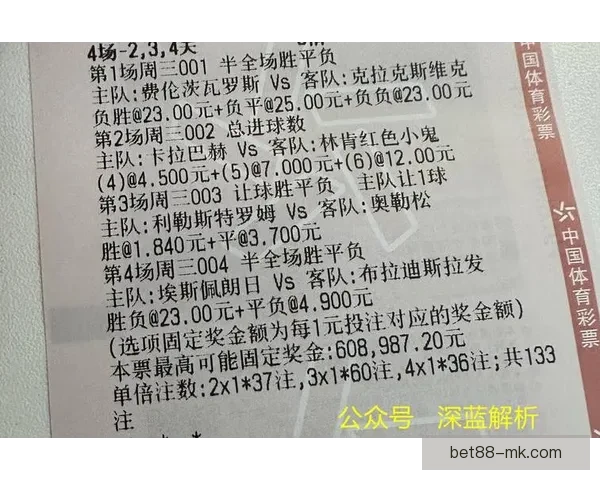 4场-2,3,4关
第1场周三001 半全场胜平负
主队:费伦茨瓦罗斯 Vs 客队:克拉克斯维克
负胜@23.00元+负平@25.00元+负负@23.00元
第2场周三002 总进球数
主队:卡拉巴赫 Vs 客队:林肯红色小鬼
(4)@4.500元+(5)@7.000元+(6)@12.00元
第3场周三003 让球胜平负 主队让1球
主队:利勒斯特罗姆 Vs 客队:奥勒松
胜@1.840元+平@3.700元
第4场周三004 半全场胜平负
主队:埃斯佩朗日 Vs 客队:布拉迪斯拉发
胜负@23.00元+平负@4.900元
(选项固定奖金额为每1元投注对应的奖金额)
本票最高可能固定奖金:608,987.20元
单倍注数:2x1*37注,3x1*60注,4x1*36注;共133
注
公众号 深蓝解析
中国体育彩票
中国体育彩票
bet88-mk.com